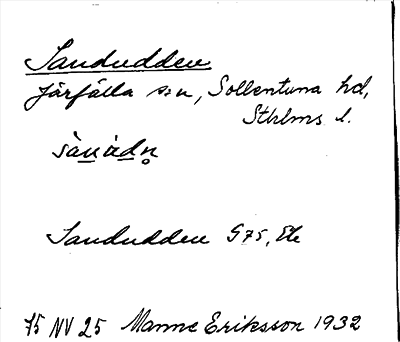 Sandudden
Järfälla sn, Sollentuna hd,
Sthlms l.
Sandudden G75, Ek
75 NV 25 Manne Eriksson 1932